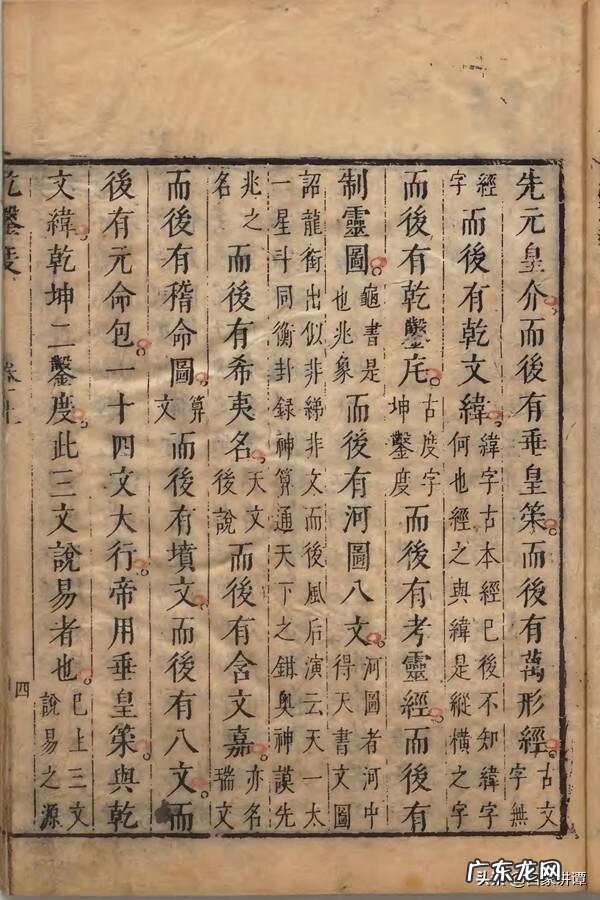 先元皇介而後有垂皇策而後有萬形經古文字無
經字而後有乾文緯緯字古本經巳後不知緯字何也經之與緯是縱橫之字
而後有乾鑿㡯古度字坤鑿度而後有考靈經而後有
制靈圖龜書是也兆象而後有河圖八文河圖者河中得天書文圖
詔龍銜出似非綈非文而後風后演云天一太一星斗同衡卦録神算通天下之鉗奥神謨先
兆之名而後有希夷名天文後說而後有含文嘉亦名瑞文
而後有稽命圖算文而後有墳文而後有八文而
後有元命包一十四文大行帝用垂皇策與乾
文緯乾坤二鑿度此三文說易者也巳上三文說易之源
乾鑿度 卷上 四
头条 @百家讲谭
广东龙网